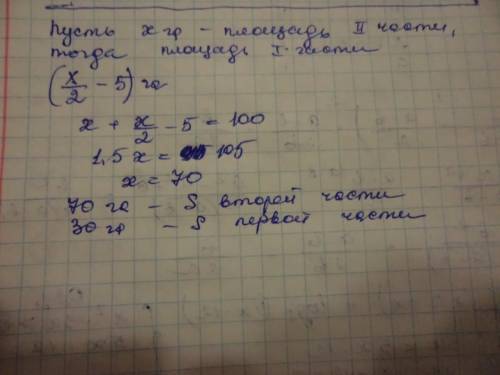 Пусть x га – площадь II части,
тогда площадь I части
(x/2 - 5) га
x + x/2 - 5 = 100
1,5 x = 105
x = 70
70 га – S второй части
30 га – S первой части